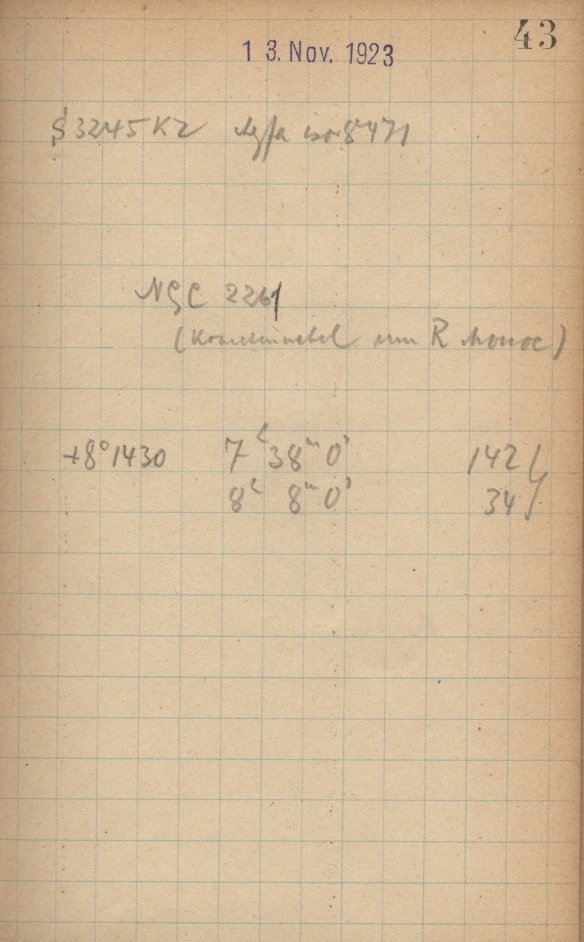 43
13. Nov. 1923
S 3245 KZ Agfa iso 8471
NGC 2261
(Kometennebel um R Monoc)
+8° 1430 7ʰ 38ᵐ 0ˢ 142
8ʰ 8ᵐ 0ˢ 34